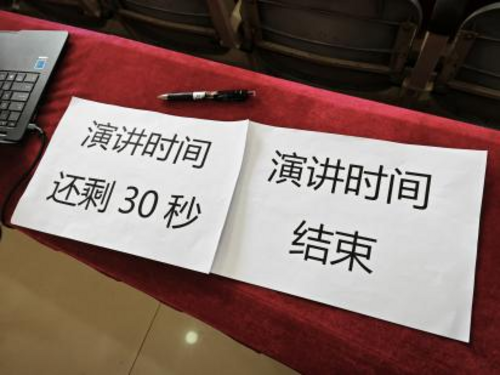 演讲时间
还剩 30 秒
演讲时间
结束